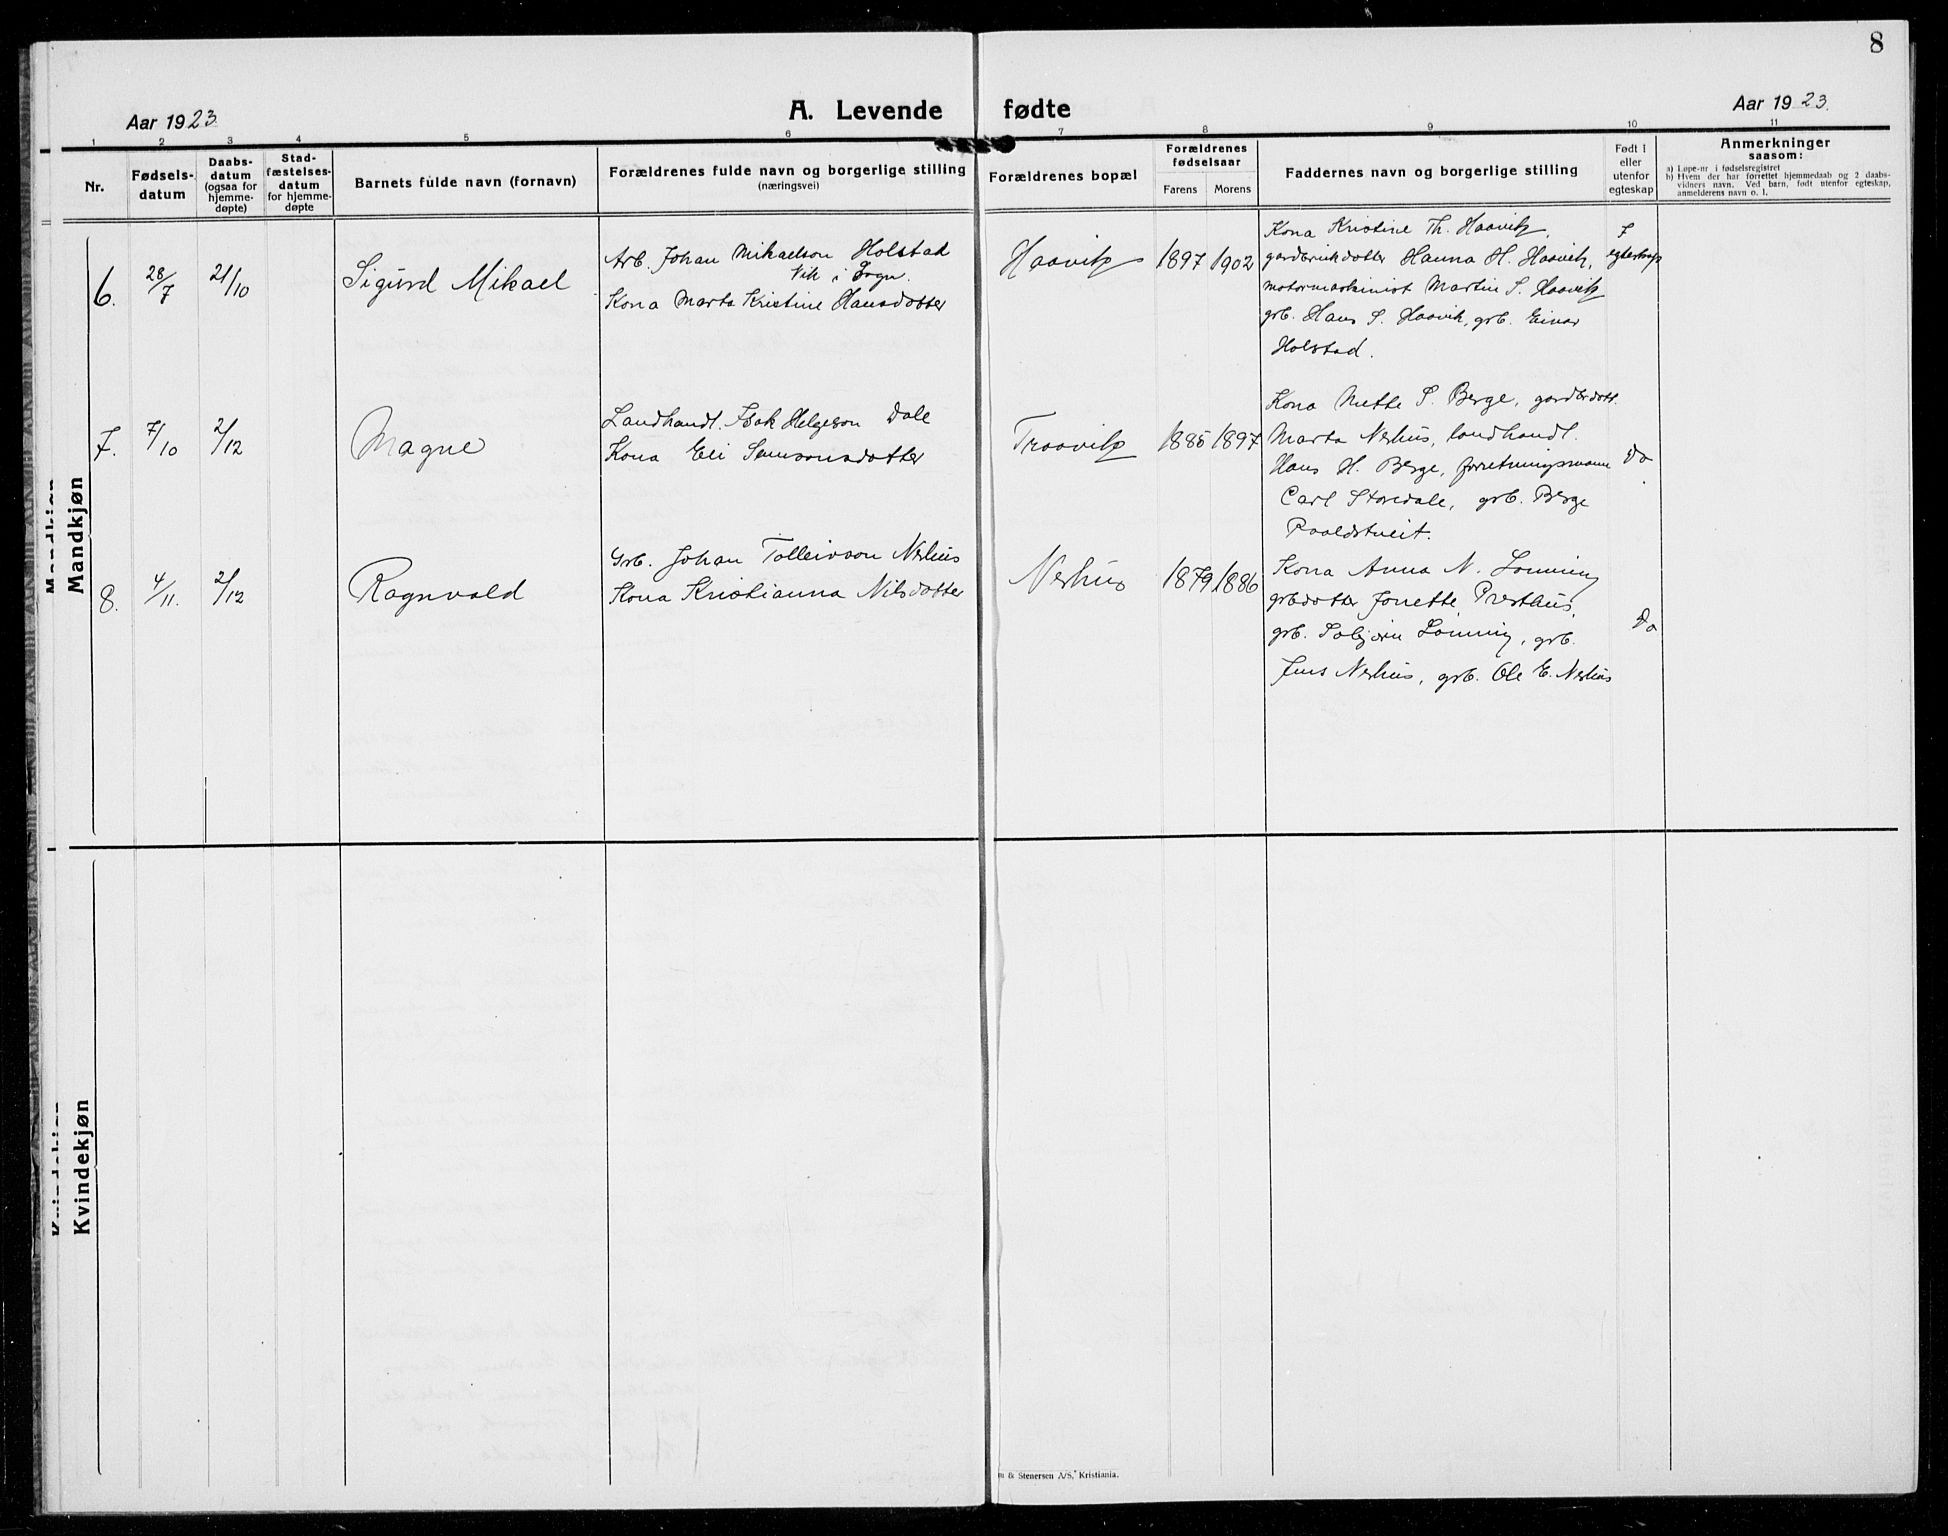 8
Aar 1923.
A. Levende fødte
Aar 1923.
1 2 3 4 5 6 7 8 9 10 11
Nr.
Fødsels-
datum
Daabs-
datum
(ogsaa for
hjemme-
døpte)
Stad-
fæstelses-
datum
for hjemme-
døpte
Barnets fulde navn (fornavn)
Forældrenes fulde navn og borgerlige stilling
(næringsvei)
Forældrenes bopæl
Forældrenes
fødselsaar
Farens Morens
Faddernes navn og borgerlige stilling
Født i
eller
utenfor
egteskap
Anmerkninger
saasom:
a) Løpe-nr i fødselsregistret
b) Hvem der har forrettet hjemmedaab og 2 daabs-
vidners navn. Ved barn, født utenfor egteskap,
anmelderens navn o. l.
Mandkjøn
6.
28/7
21/10
Sigurd Mikael
Arb. Johan Mikaelson Holstad
Vik i Sogn.
Kona Marta Kristine Hansdotter
Haavik
1897 1902
Kona Kristine Th. Haavik,
gardbrukdotter Hanna H. Haavik,
motormaskinist Martin S. Haavik
grb. Hans S. Haavik, grb. Einar
Holstad.
I
egteskap
7.
7/10
2/12
Magne
Landhandl. Isak Helgeson Dale
Kona Eli Samsonsdotter
Traavik
1885 1897
Kona Mette S. Berge, gardbrdott.
Marta Nerhus, landhandl.
Hans H. Berge, forretningsmann
Carl Storedale, grb. Berge
Raaldstveit.
Do
8.
4/11.
2/12
Ragnvald
Grb. Johan Tolleivson Nerhus
Kona Kristianna Nilsdotter
Nerhus
1879 1886
Kona Anna N. Lønning
grbdotter Jonette Presthus,
grb. Torbjørn Lønning, grb.
Jens Nerhus, grb. Ole E. Nerhus
Do
Kvindekjøn
m & Stenersen A/S, Kristiania.